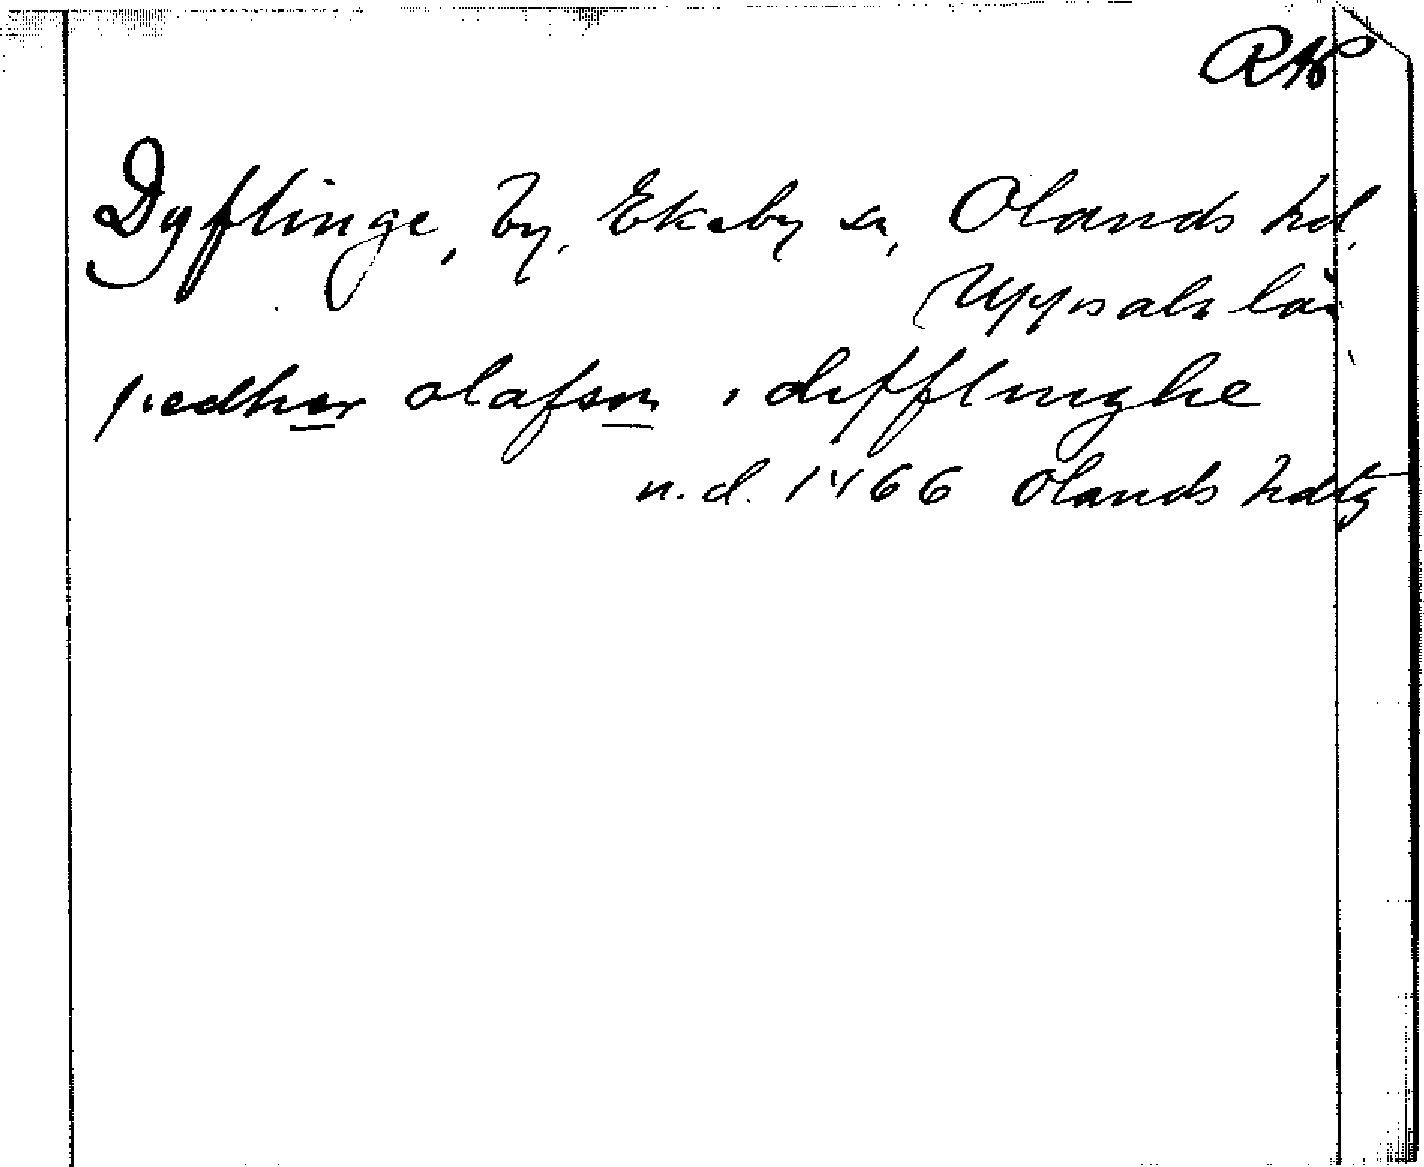 RAP
Dyflinge, by, Ekeby sn, Olands hd,
Uppsala län
pedher olafson i difflinghe
n.d. 1466 Olands hdtg